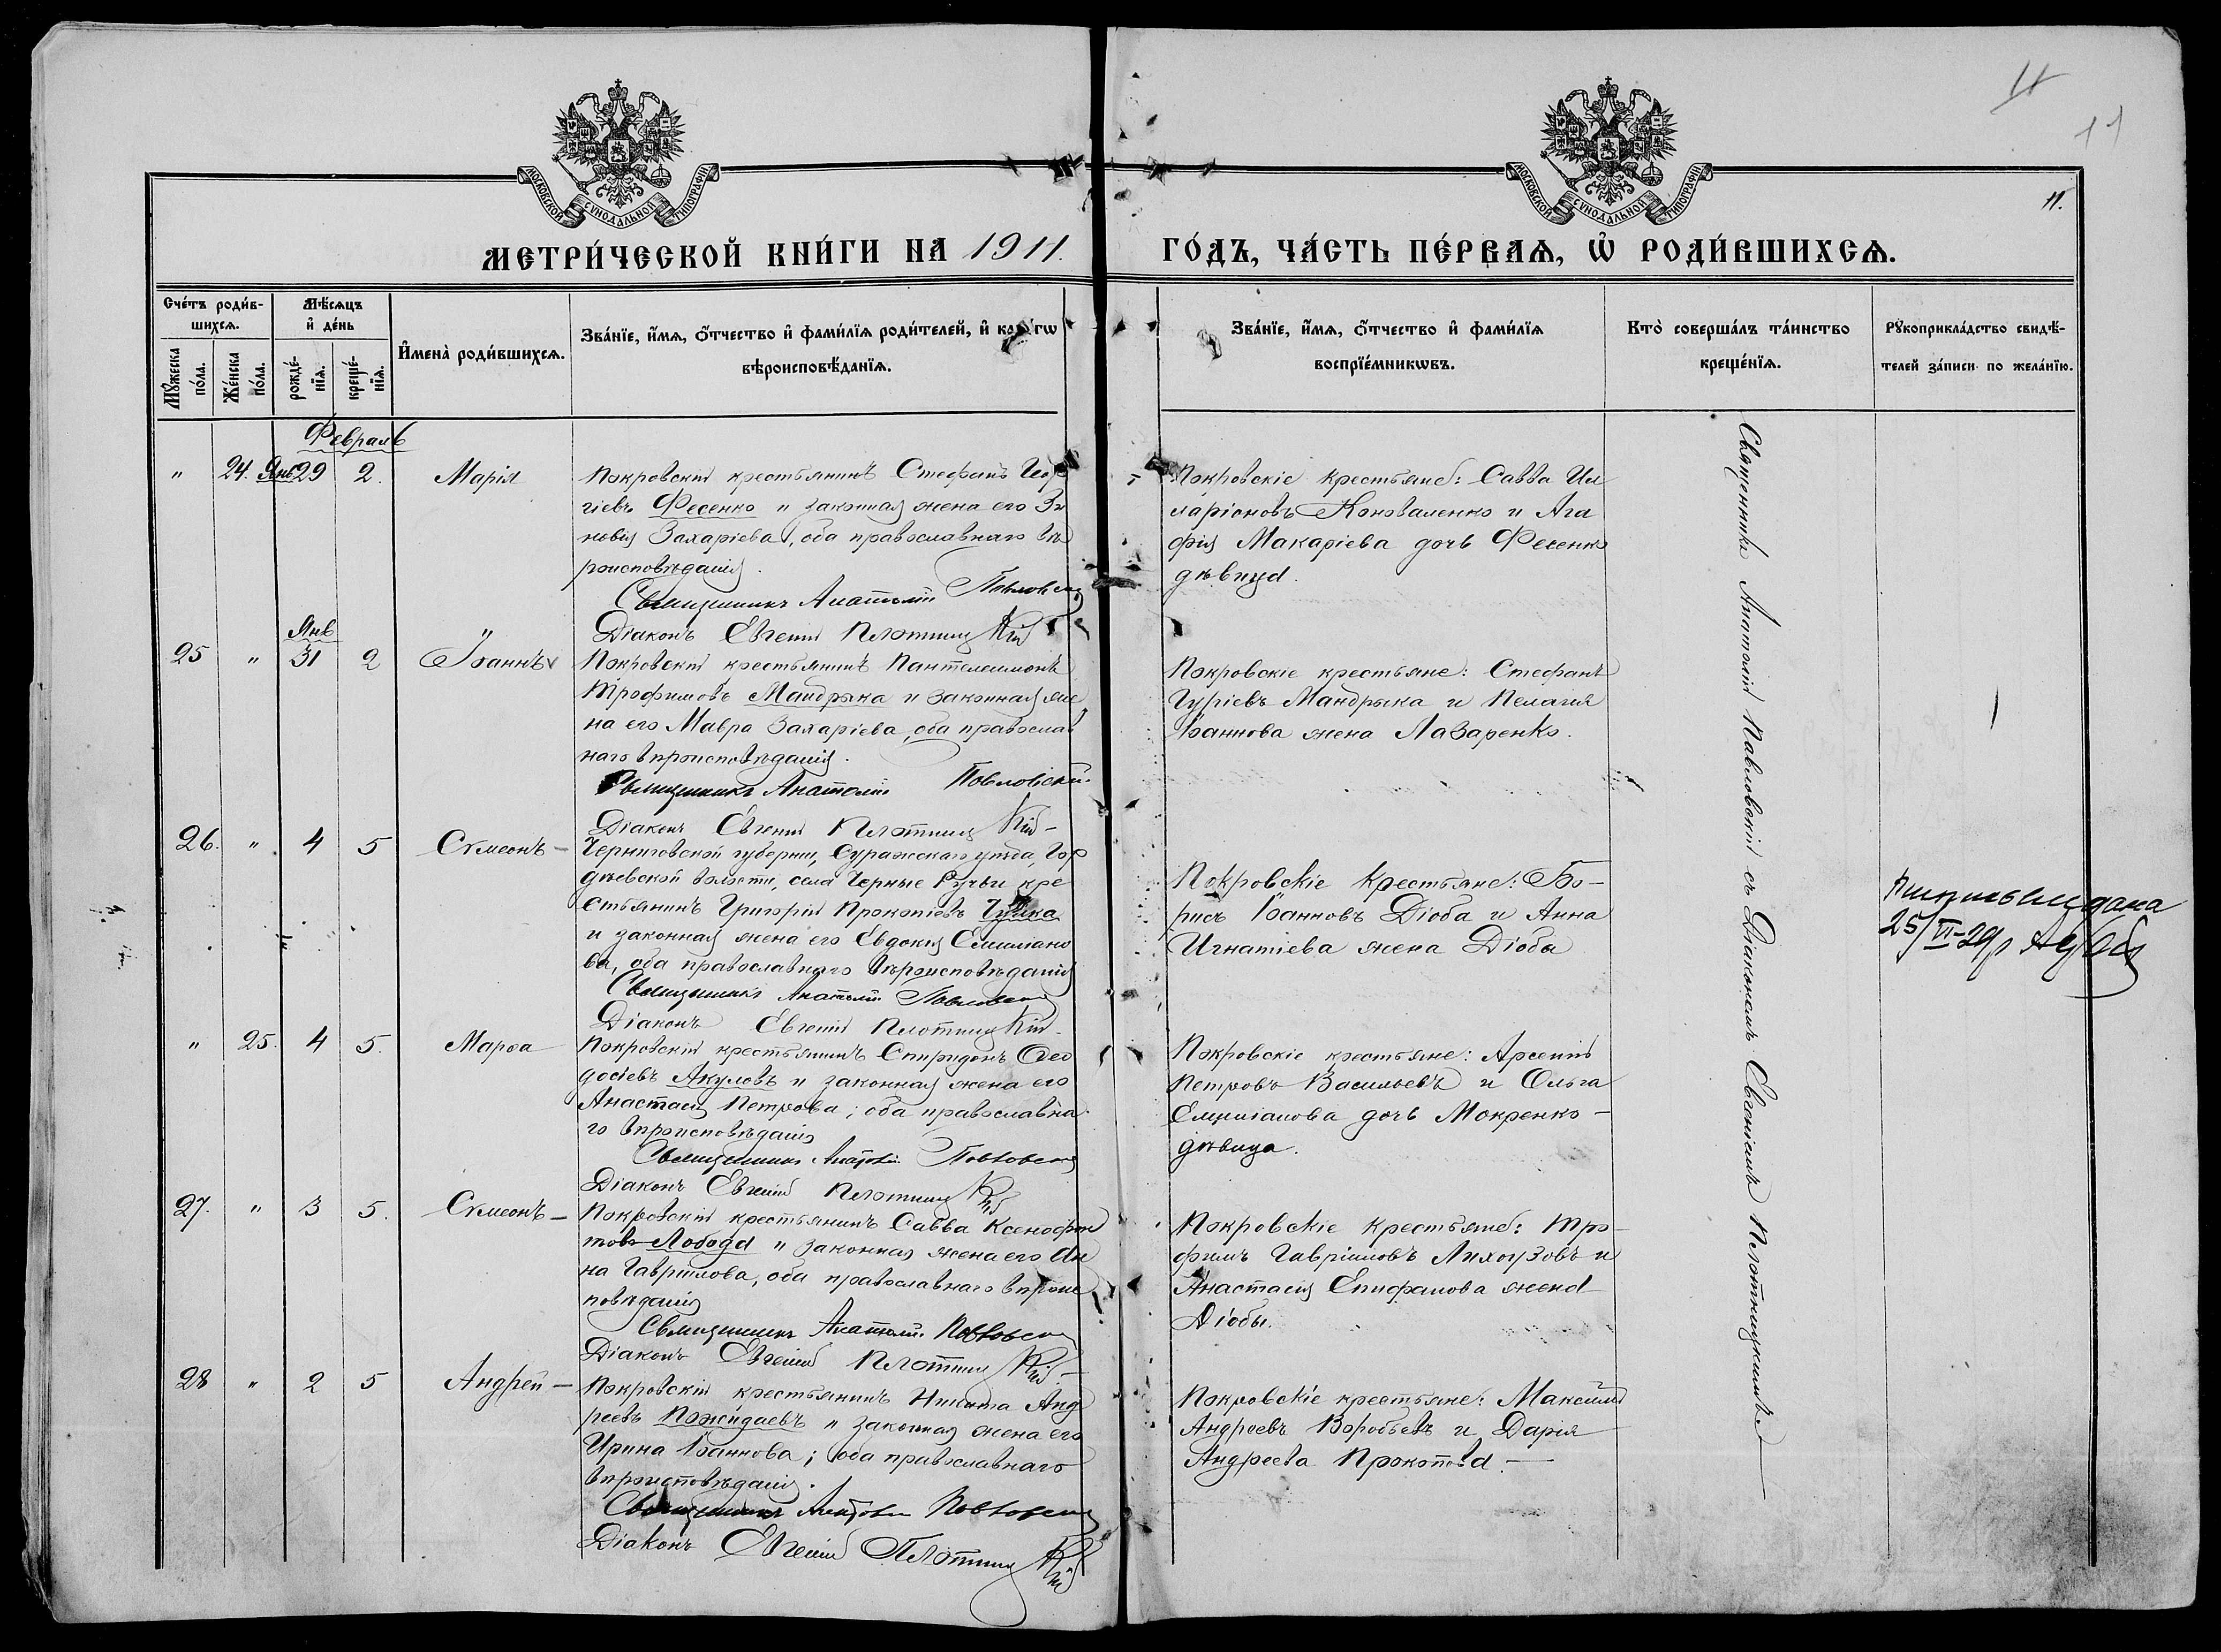 МОСКОВСКОЙ СѴНОДАЛЬНОЙ ТИПОГРАФІИ
МОСКОВСКОЙ СѴНОДАЛЬНОЙ ТИПОГРАФІИ
11
11.
МЕТРИ́ЧЕСКОЙ КНИ́ГИ НА 1911. ГО́ДЪ, ЧА́СТЬ ПЕ́РВАѦ, Ѡ҆ РОДИ́ВШИХСѦ.
Сче́тъ роди́в-
шихсѧ.
Мꙋ́жеска по́ла.
Же́нска по́ла.
Мѣ́сѧцъ
и҆ де́нь
рожде́-
нїѧ.
креще́-
нїѧ.
И҆мена̀ роди́вшихсѧ.
Зва́нїе, и҆́мѧ, ѻ҆́тчество и҆ фами́лїѧ роди́телей, и҆ как
вѣроисповѣ́данїѧ.
Зва́нїе, и҆́мѧ, ѻ҆́тчество и҆ фами́лїѧ
воспрїе́мникѡвъ.
Кто̀ соверша́лъ та́инство
креще́нїѧ.
Рꙋкоприкла́дство свидѣ́-
телей за́писи по жела́нїю.
Февраль
" 24. Янв 29 2. Марія
Покровскій крестьянинъ Стефанъ Геор
гіевъ Фесенко и законная жена его Зи
новія Захаріева, оба православнаго вѣ
роисповѣданія.
Священникъ Анатолій Павловскій
Діаконъ Евгеній Плотницкій
Покровскіе крестьяне: Савва Ил
ларіоновъ Коноваленко и Ага
фія Макаріева дочь Фесенко
дѣвица.
Янв
25 " 31 2 Іоаннъ
Покровскій крестьянинъ Пантелеимонъ
Трофимовъ Мандрыка и законная же
на его Мавра Захаріева, оба православ
наго вѣроисповѣданія.
Священникъ Анатолій Павловскій
Діаконъ Евгеній Плотницкій
Покровскіе крестьяне: Стефанъ
Гуріевъ Мандрыка и Пелагія
Іоаннова жена Лазаренко.
26. " 4 5 Сѵмеонъ
Черниговской губерніи, Суражскаго уѣзда, Гор
дѣевской волости, села Черные Ручьи кре
стьянинъ Григорій Прокопіевъ
и законная жена его Евдокія Емиліано
ва, оба православнаго вѣроисповѣданія
Священникъ Анатолій Павловскій
Діаконъ Евгеній Плотницкій
Покровскіе крестьяне: Бо-
рисъ Іоанновъ Діоба и Анна
Игнатіева жена Діобы
дана
25/VI-29
" 25. 4 5. Марѳа
Покровскій крестьянинъ Спиридонъ Ѳео
досіевъ Акуловъ и законная жена его
Анастасія Петрова; оба православна
го вѣроисповѣданія
Священникъ Анатолій Павловскій
Діаконъ Евгеній Плотницкій
Покровскіе крестьяне: Арсеній
Петровъ Васильевъ и Ольга
Емиліанова дочь Мокренко-
дѣвица.
27. " 3 5. Сѵмеонъ
Покровскій крестьянинъ Савва Ксенофон
товъ Лобода и законная жена его Ан
на Гавріилова, оба православнаго вѣроис
повѣданія
Священникъ Анатолій Павловскій
Діаконъ Евгеній Плотницкій
Покровскіе крестьяне: Тро-
фимъ Гавріиловъ Лихоузовъ и
Анастасія Епифанова жена
Діобы.
28 " 2 5 Андрей
Покровскій крестьянинъ Никита Анд
реевъ Пожидаевъ и законная жена его
Ирина Іоаннова; оба православнаго
вѣроисповѣданія.
Священникъ Анатолій Павловскій
Діаконъ Евгеній Плотницкій
Покровскіе крестьяне: Максимъ
Андреевъ Воробьевъ и Дарія
Андреева Прокопова.
Священникъ Анатолій Павловскій съ Діакономъ Евгеніемъ Плотницкимъ